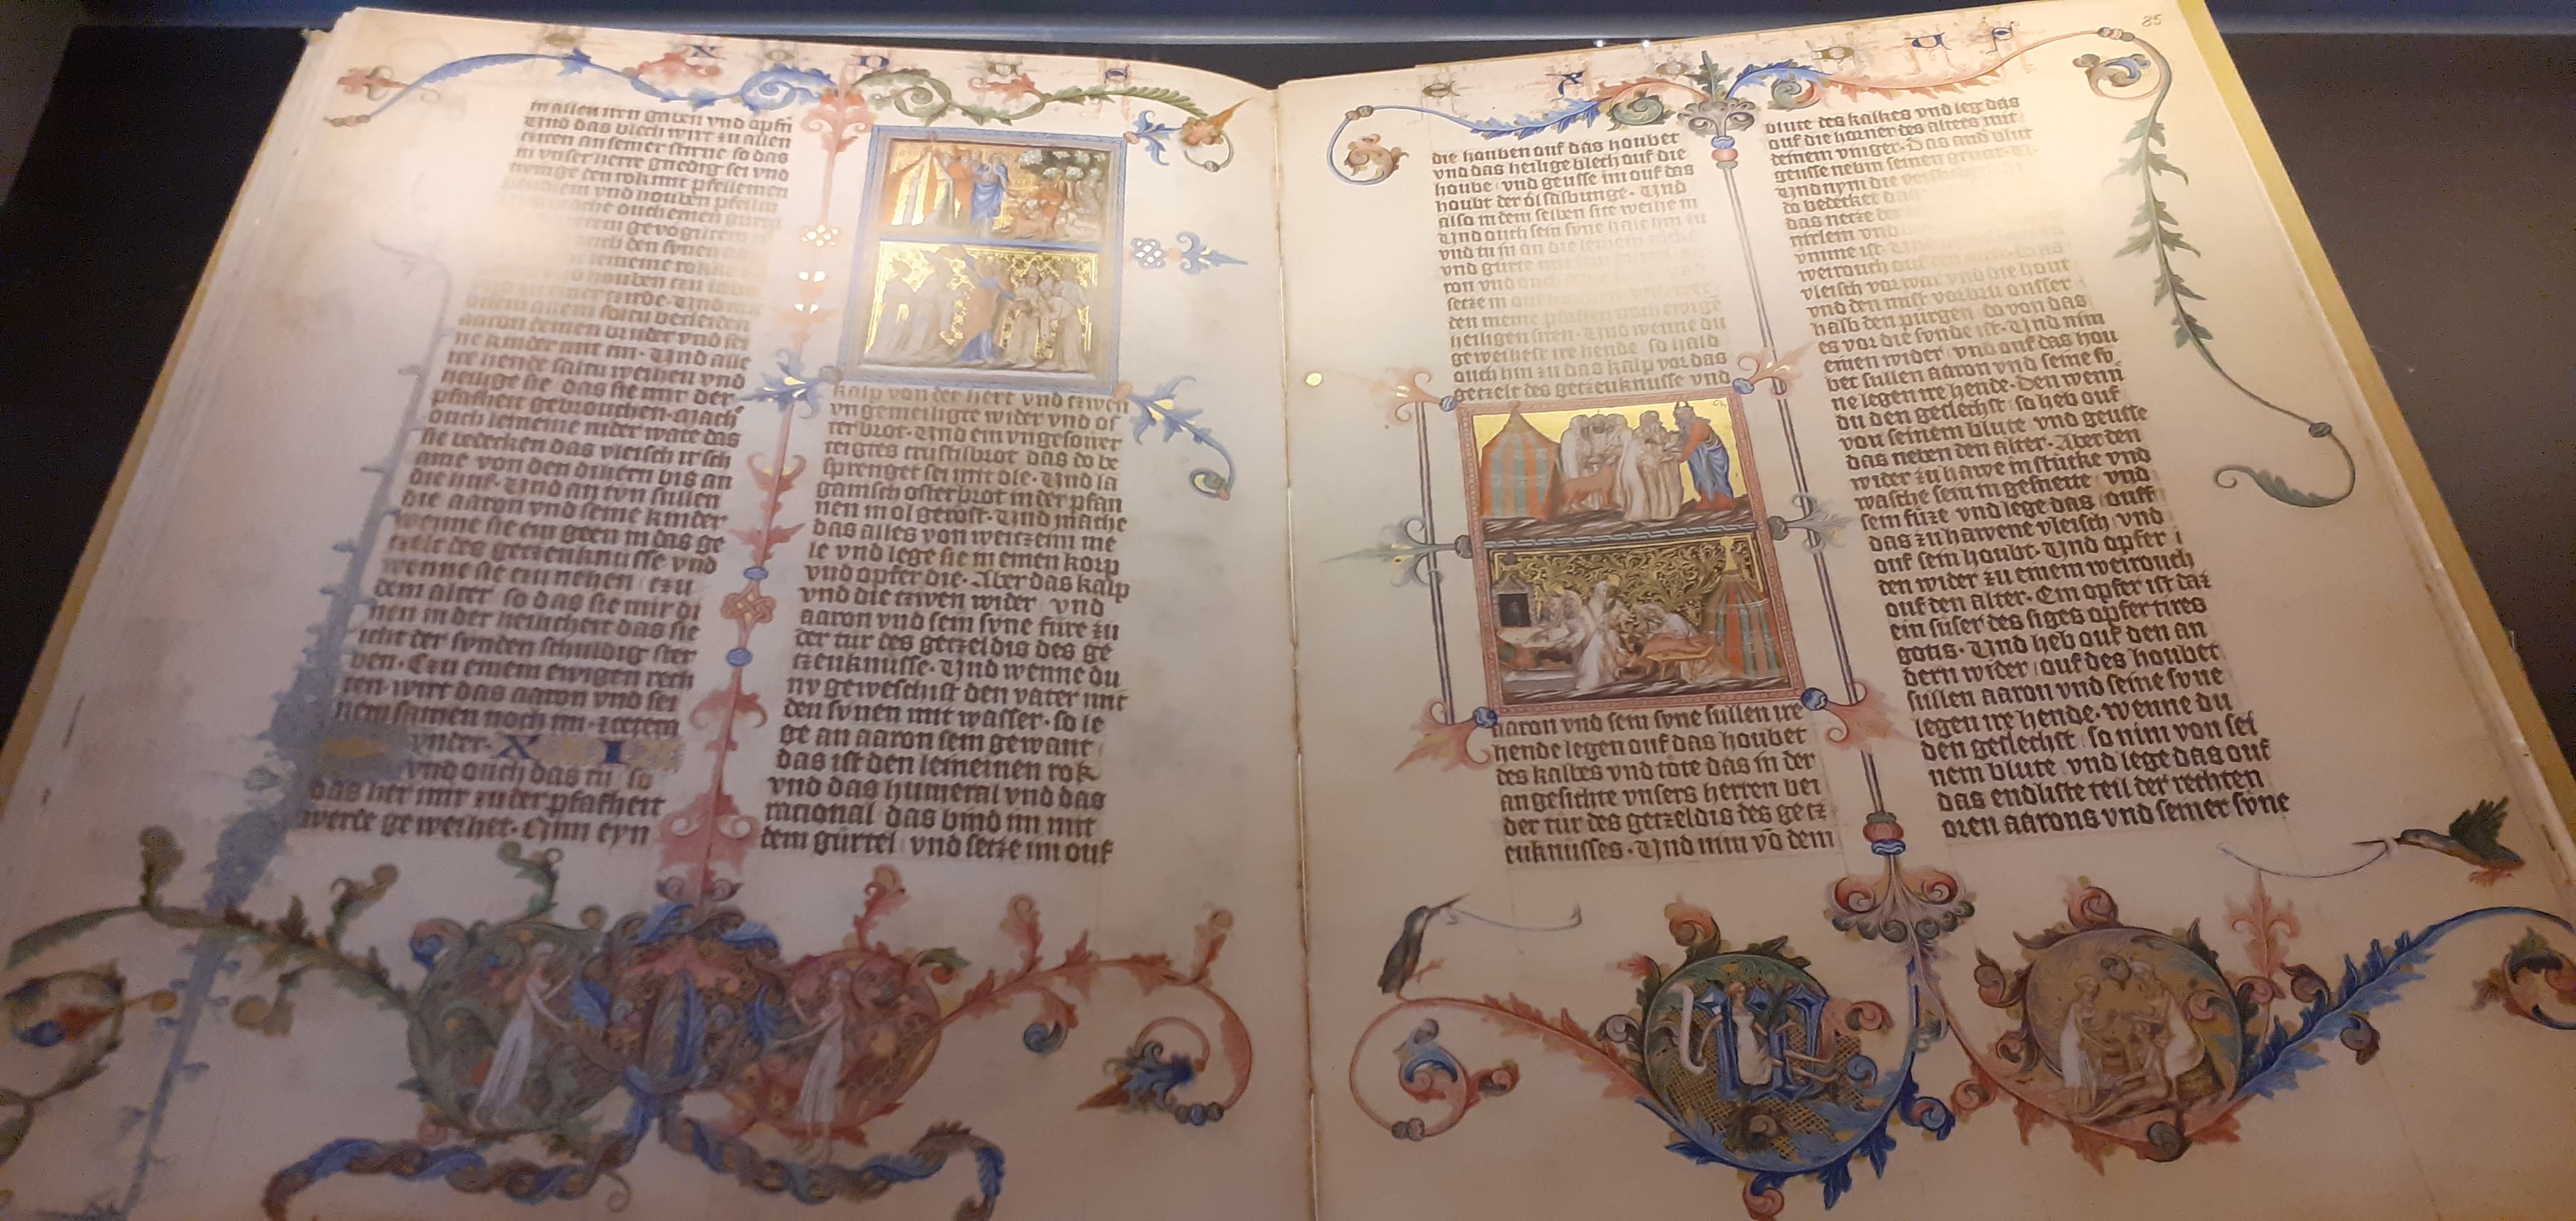 X O D U S
in allen iren gaben vnd opfn
Vnd das blech wirt zu allen
citen an seiner stirne so das
in vnser herre gnedig sei vnd
den rok mit pfellemen
vnd houben pfellin
mache ouch einen gurtel
ouch den synen
leineine rokke
houben czu
Vnd
disem allem saltu becleiden
aaron deinen bruder vnd sei
ne kinder mit im. Vnd alle
ire hende saltu weihen vnd
heilige sie das sie mir der
pfafheit gebrouchen. Mach
ouch leineine nider wate das
sie bedecken das vleisch ir sch
ame von den diuern bis an
die huf. Vnd an tyn sullen
die aaron vnd seine kinder
wenne sie ein geen in das ge
czelt des geczeuknusse vnd
wenne sie czu nehen czu
dem alter so das sie mir di
nen in der heilicheit das sie
icht der synden schuldig ster
ben. Czu einem ewigen rech
ten wirt das aaron vnd sei
nem samen noch im
X I X
vnd ouch das tu so
das her mir zu der pfafheit
werde geweihet. Nim eyn
kalp von der hert vnd czwen
vngemeiligte wider vnd os
ter brot. Vnd ein vngesouer
teigtes crustisbrot das do be
sprenget sei mit ole. Vnd la
gamsch osterbrot in der pfan
nen in ol gerost. Vnd mache
das alles von weitzeim me
le vnd lege sie in einen korp
vnd opfer die. Aber das kalp
vnd die czwen wider vnd
aaron vnd sein syne fure zu
der tur des getzeldis des ge
czeuknusse. Vnd wenne du
nv geweschist den vater mit
den synen mit wasser. so le
ge an aaron sein gewant
das ist den leineinen rok
vnd das humeral vnd das
racional das bind im mit
dem gürtel vnd setze im ouf
85
die houben ouf das houbet
vnd das heilige blech ouf die
hoube vnd geusse im ouf das
houbt der öl salbunge. Vnd
also in dem selben site weihe in
Vnd ouch sein syne halt hin zu
vnd tu in an die leinein rocke
vnd gurte
ron vnd
setze in ouf houben
den meine pfaffen noch ewige
heiligen siten. Vnd wenne du
geweihest ire hende so hald
ouch hin zu das kalp vor das
getzelt des getzeuknusse vnd
aaron vnd sein syne sullen ire
hende legen ouf das houbet
des kalbes vnd töte das in der
angesichte vnsers herren bei
der tür des getzeldis des getz
euknusses. Vnd nim vō dem
blute des kalbes vnd leg das
ouf die horner des alters mit
deinem vinger. Das and blut
geusse nebin seinen grunt.
Vnd nym die
do bedecket das
das netze der
nirlein vnd
ymme ist.
weirouch ouf den
vleisch vorwar vnd die hout
vnd den mist vorbrü ousser
halb den pürgen do von das
es vor die sünde ist. Vnd nim
einen wider vnd ouf das hou
bet sullen aaron vnd seine sy
ne legen ire hende. Den wenn
du den geslechst so heb ouf
von seinem blute vnd geusse
das neben den alter. Aber den
wider zu hawe in stücke vnd
wasche sein ingesneite vnd
sein füze vnd lege das ouff
das zu hawene vleisch vnd
ouf sein houbt. Vnd opfer
den wider zu einem weirouch
ouf den alter. Ein opfer ist daz
ein süser des siges opfertires
gotis. Vnd heb ouf den an
dern wider ouf des houbet
sullen aaron vnd seine syne
legen ire hende. wenne du
den geslechst so nim von sei
nem blute vnd lege das ouf
das endliste teil der rechten
oren aarons vnd seiner syne